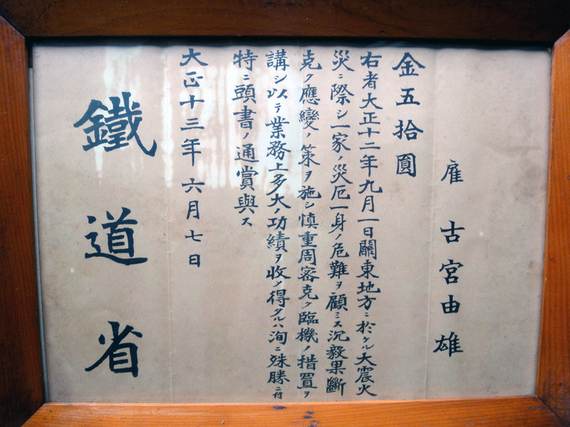 雇 古宮由雄
金五拾圓
右者大正十二年九月一日關東地方ニ於ケル大震火
災ニ際シ一家ノ災厄一身ノ危難ヲ顧ミス沉毅果斷
克ク應變ノ策ヲ施シ愼重周密克ク臨機ノ措置ヲ
講シ以テ業務上多大ノ功績ヲ收メ得タルハ洵ニ殊勝ニ付
特ニ頭書ノ通賞與ス
大正十三年六月七日
鐵道省